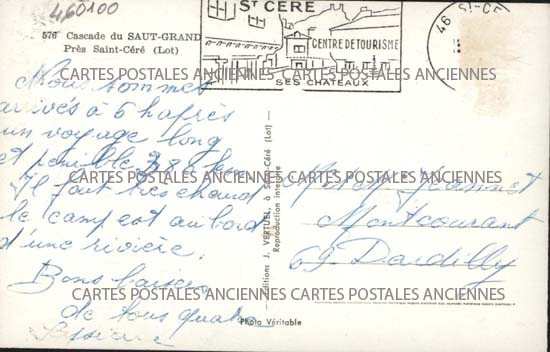 460100
576 Cascade du SAUT-GRAND
Près Saint-Céré (Lot)
ST CÉRÉ
CENTRE DE TOURISME
SES CHATEAUX
46 ST-CÉ
CARTES POSTALES ANCIENNES CARTES POSTALES ANCIENNES
Nous sommes
arrivés à 6 h après
un voyage long
et penible
CARTES POSTALES ANCIENNES CARTES POSTALES ANCIENNES
Il fait très chaud
le camp est au bord
d'une rivière.
Bons baisers
CARTES POSTALES ANCIENNES CARTES POSTALES ANCIENNES
de tous quatre
Éditions J. VERTUEL, à Saint-Céré (Lot)
Reproduction interdite
Photo Véritable
Montcourant
69 Dardilly